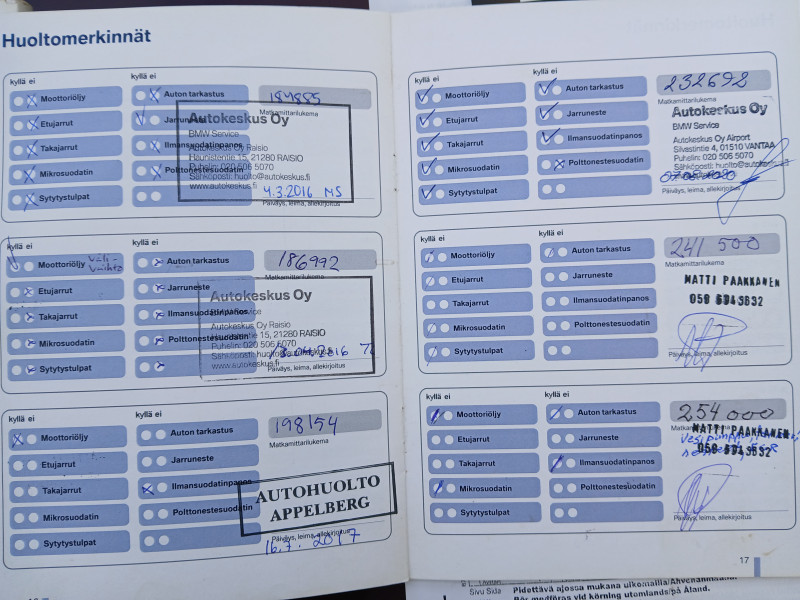 Huoltomerkinnät
kyllä ei
kyllä ei
Moottoriöljy
Auton tarkastus
184885
Matkamittarilukema
Etujarrut
Jarruneste
Autokeskus Oy
BMW Service
Takajarrut
Ilmansuodatinpanos
Autokeskus Oy Raisio
Haunistentie 15, 21280 RAISIO
Mikrosuodatin
Polttonestesuodatin
Puhelin: 020 506 5070
Sähköposti: huolto@autokeskus.fi
www.autokeskus.fi
4.3.2016 MS
Sytytystulpat
Päiväys, leima, allekirjoitus
kyllä ei
kyllä ei
Moottoriöljy
Väli-
vaihto
Auton tarkastus
186992
Matkamittarilukema
Etujarrut
Jarruneste
Autokeskus Oy
Takajarrut
Ilmansuodatinpanos
Autokeskus Oy Raisio
Haunistentie 15, 21280 RAISIO
Mikrosuodatin
Polttonestesuodatin
Puhelin: 020 506 5070
Sähköposti: huolto@autokeskus.fi
www.autokeskus.fi
Sytytystulpat
Päiväys, leima, allekirjoitus
kyllä ei
kyllä ei
Moottoriöljy
Auton tarkastus
198154
Matkamittarilukema
Etujarrut
Jarruneste
Takajarrut
Ilmansuodatinpanos
AUTOHUOLTO
APPELBERG
Mikrosuodatin
Polttonestesuodatin
Sytytystulpat
Päiväys, leima, allekirjoitus
16.7. 2017
kyllä ei
kyllä ei
Moottoriöljy
Auton tarkastus
232692
Matkamittarilukema
Etujarrut
Jarruneste
Autokeskus Oy
BMW Service
Takajarrut
Ilmansuodatinpanos
Autokeskus Oy Airport
Silvastintie 4, 01510 VANTAA
Mikrosuodatin
Polttonestesuodatin
Puhelin: 020 506 5070
Sähköposti: huolto@autokeskus
07.05.2020
Sytytystulpat
Päiväys, leima, allekirjoitus
kyllä ei
kyllä ei
Moottoriöljy
Auton tarkastus
241 500
Matkamittarilukema
Etujarrut
Jarruneste
MATTI PAAKKANEN
Takajarrut
Ilmansuodatinpanos
Mikrosuodatin
Polttonestesuodatin
Sytytystulpat
Päiväys, leima, allekirjoitus
kyllä ei
kyllä ei
Moottoriöljy
Auton tarkastus
254 000
MATTI PAAKKANEN
Etujarrut
Jarruneste
Takajarrut
Ilmansuodatinpanos
Mikrosuodatin
Polttonestesuodatin
Sytytystulpat
Päiväys, leima, allekirjoitus
17
Sivu Sida
Pidettävä ajossa mukana ulkomailla/Ahvenanmaalla
Bör medföras vid körning utomlands/på Åland.